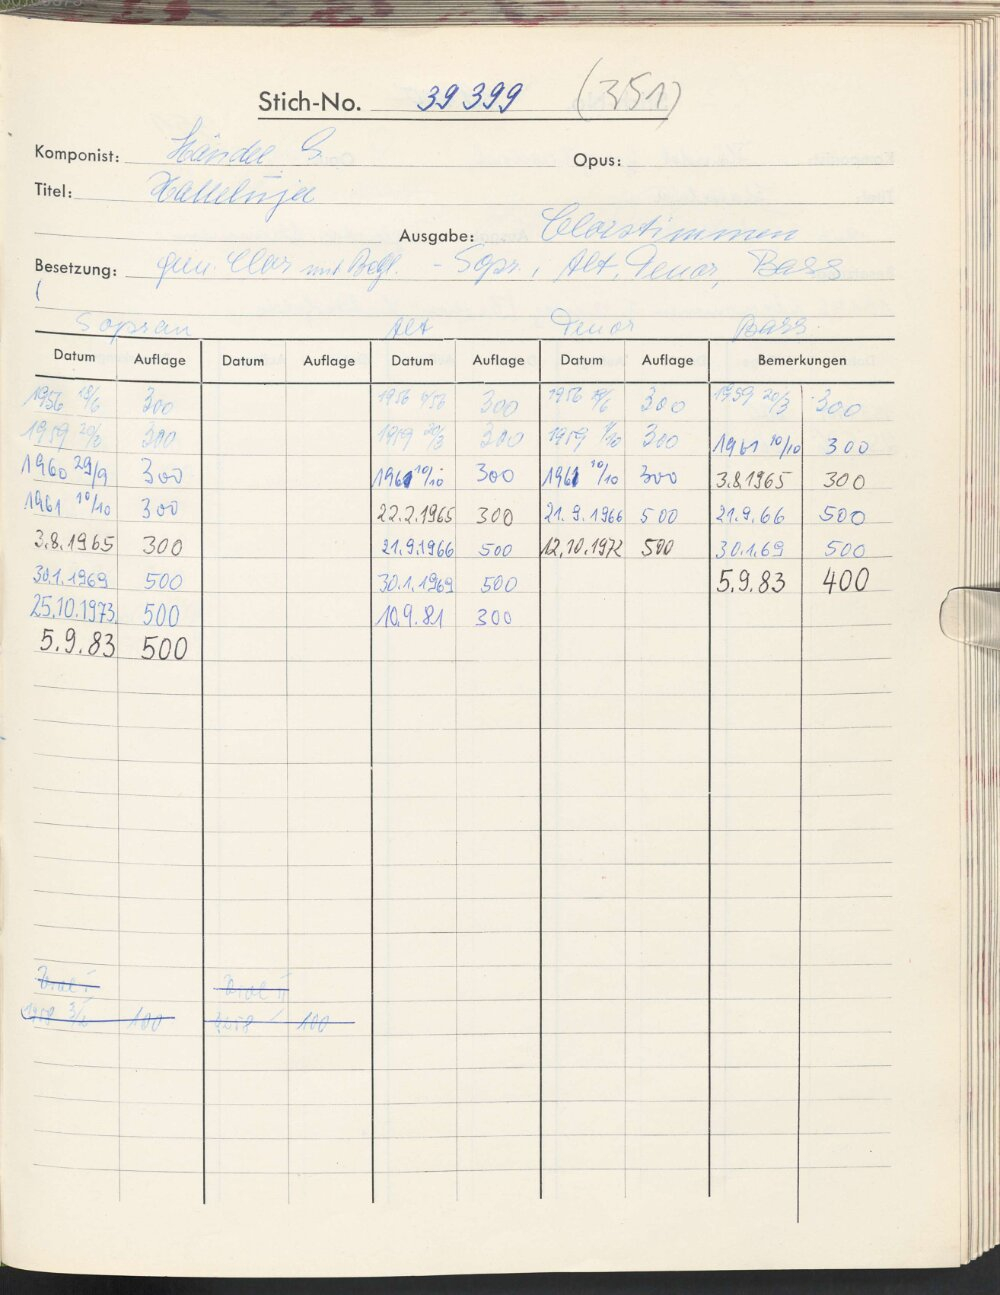 Stich-No. 39 399 (351)
Komponist: Händel G. Opus:
Titel: Halleluja
Ausgabe: Chorstimmen
Besetzung: gem. Chor mit Begl. - Sopr., Alt, Tenor, Bass
Sopran Alt Tenor Bass
Datum Auflage Datum Auflage Datum Auflage Datum Auflage Bemerkungen
1956 300 1956 300 1956 300 1959 20/3 300
1959 300 1959 300 1959 300 1961 10/10 300
1960 29/9 300 1961 10/10 300 1961 10/10 300 3.8.1965 300
1961 10/10 300 22.2.1965 300 21.9.1966 500 21.9.66 500
3.8.1965 300 21.9.1966 500 12.10.1972 500 30.1.69 500
30.1.1969 500 30.1.1969 500 5.9.83 400
25.10.1973 500 10.9.81 300
5.9.83 500
1958 100 100